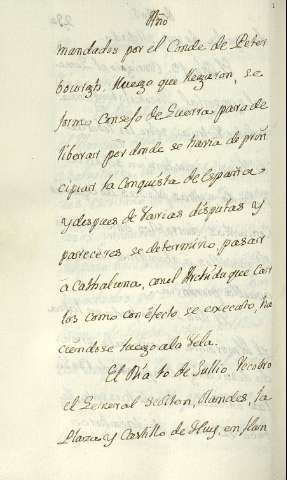 Año
mandados por el Conde de Peter
bourigh. Luego que llegaron, se
formo Consejo de Guerra para de
liberar por donde se havia de prin
cipiar la Conquista de España
y despues de varias disputas y
pareceres, se determino, pasar
a Cathaluna, con el Archiduque Car
los como con efecto se executo, ha
ciendose luego a la Vela.
El Dia 10 de Jullio, recobro
el General Olandes, la
Plaza y Castillo de Huy, en flan